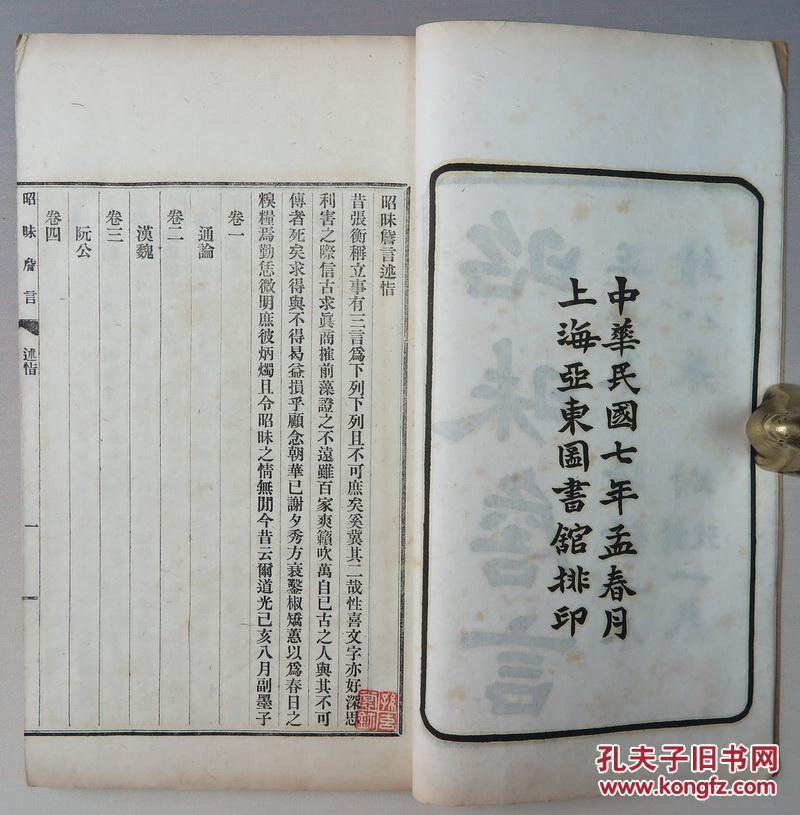 中華民國七年孟春月
上海亞東圖書館排印
昭昧詹言述恉
昔張衡稱立事有三言爲下列下列且不可庶矣奚冀其二哉性喜文字亦好深思
利害之際信古求眞商搉前藻證之不遠雖百家爽籟吹萬自已古之人與其不可
傳者死矣求得與不得曷益損乎顧念朝華已謝夕秀方衰鑿椒矯蕙以爲春日之
糗糧焉勤恁微明庶彼炳燭且令昭昧之情無閒今昔云爾道光己亥八月副墨子
卷一
通論
卷二
漢魏
卷三
阮公
卷四
昭昧詹言
述恉
一
孔夫子旧书网
www.kongfz.com